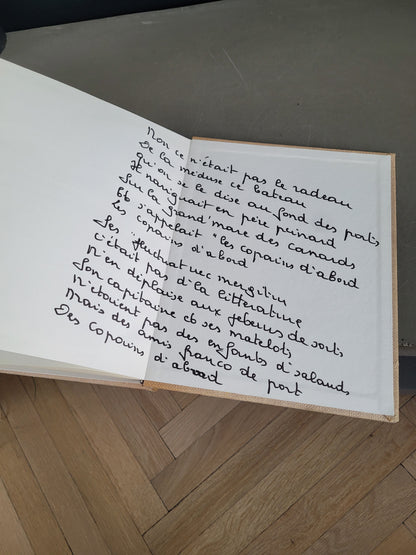 Non ce n'était pas le radeau
De la méduse ce bateau
Qu'on se le dise au fond des ports
Il naviguait en père peinard
Sur la grand'mare des canards
Et s'appelait "les copains d'abord
Les copains d'abord
Ses fluctuat nec mergitur
C'était pas d'la litterature
N'en déplaise aux jeteurs de sorts
Son capitaine et ses matelots
N'étaient pas des enfants d'salauds
Mais des amis franco de port
Des copains d'abord